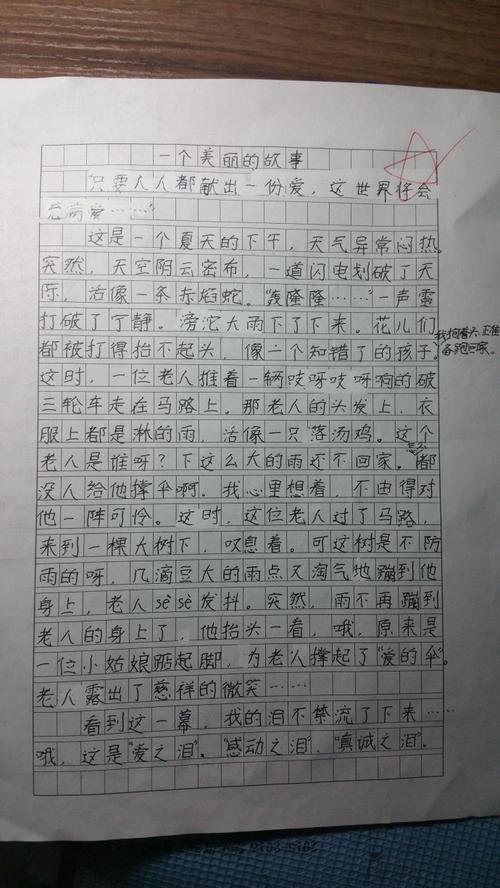 一个美丽的故事
“只要人人都献出一份爱，这世界将会
充满爱……”
这是一个夏天的下午，天气异常闷热。
突然，天空阴云密布，一道闪电划破了天
际，活像一条赤焰蛇。“轰隆隆……”一声雷
打破了宁静。滂沱大雨下了下来。花儿们
都被打得抬不起头，像一个知错了的孩子。
我抱着头，正准
备跑回家。
这时，一位老人推着一辆吱呀吱呀响的破
三轮车走在马路上。那老人的头发上，衣
服上都是淋的雨，活像一只落汤鸡。这个
老人是谁呀？下这么大的雨还不回家。怎么都
没人给他撑伞啊。我心里想着，不由得对
他一阵可怜。这时，这位老人过了马路，
来到一棵大树下，叹息着。可这树是不防
雨的呀，几滴豆大的雨点又淘气地蹦到他
身上，老人sèsè发抖。突然，雨不再蹦到
老人的身上了，他抬头一看，哦，原来是
一位小姑娘踮起脚，为老人撑起了“爱的伞”。
老人露出了慈祥的微笑……
看到这一幕，我的泪不禁流了下来……
哦，这是“爱之泪”。“感动之泪”、“真诚之泪”。